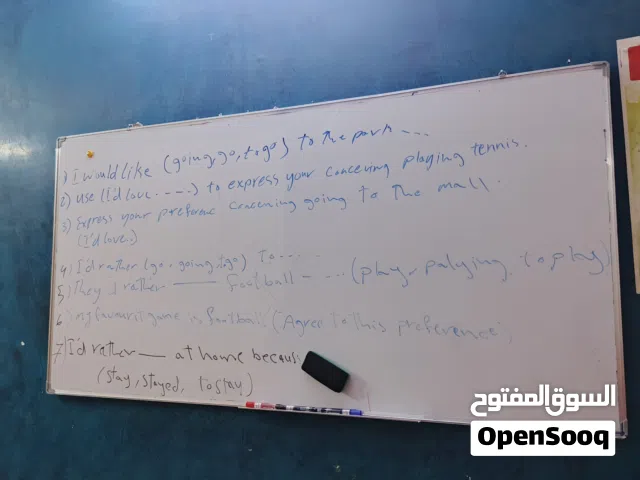 1) I would like (going, go, to go) to the park ...
2) use (I'd love ----) to express your conceving playing tennis.
3) Express your preference concening going to the mall.
(I'd love.)
4) I'd rather (go, going, togo) to.....
5) They'd rather —— football - ... (play, palying, to play)
6 my favourit game is football. (Agree to this preference,
7) I'd rather —— at home becaus
(stay, stayed, to stay)
السوق المفتوح
OpenSooq